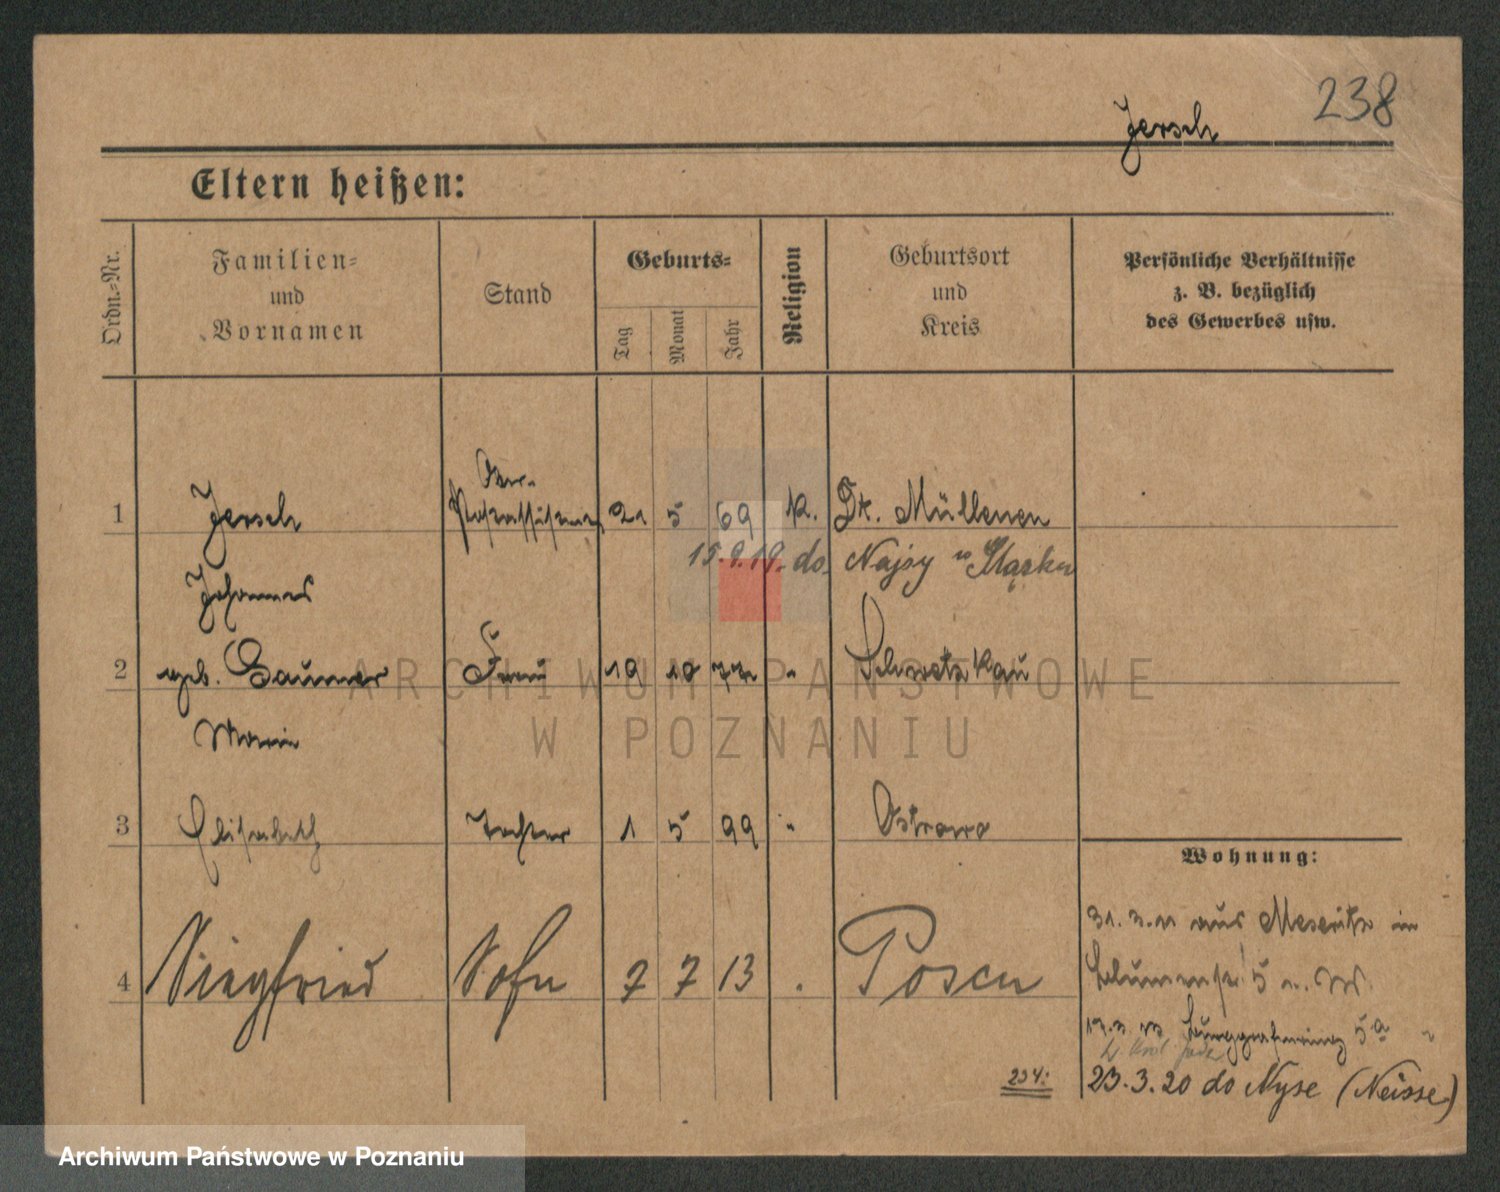 238
Jersch
Eltern heißen:
Ordn.=Nr.
Familien=
und
Vornamen
Stand
Geburts=
Tag
Monat
Jahr
Religion
Geburtsort
und
Kreis
Persönliche Verhältnisse
z. B. bezüglich
des Gewerbes usw.
Ober-
1 Jersch Postassistent 21 5 69 k. Dt. Müllmen
15.9.19. do Najsy Śląsku
Johannes
2 geb. Frau 19 10 77 "
Marie
3 Elisabeth Tochter 1 5 99 " Ostrowo
Wohnung:
31.3.11 aus Meseritz in
4 Siegfried Sohn 7 7 13 . Posen
5 n. W.
Burggrafenring 5a "
234:
23.3.20 do Nyse (Neisse)
ARCHIWUM PAŃSTWOWE
W POZNANIU
Archiwum Państwowe w Poznaniu